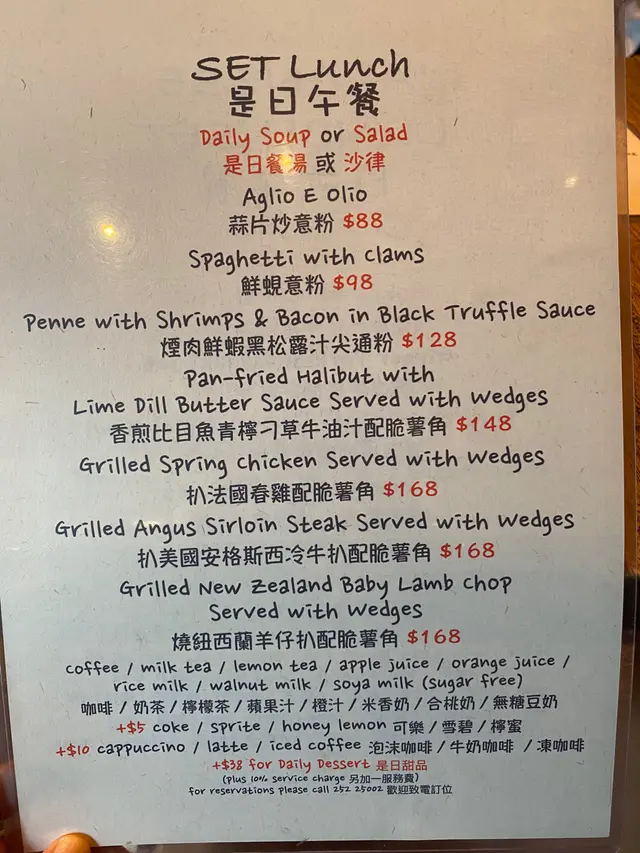 SET Lunch
是日午餐
Daily Soup or Salad
是日餐湯 或 沙律
Aglio E Olio
蒜片炒意粉 $88
Spaghetti with clams
鮮蜆意粉 $98
Penne with Shrimps & Bacon in Black Truffle Sauce
煙肉鮮蝦黑松露汁尖通粉 $128
Pan-fried Halibut with
Lime Dill Butter Sauce Served with Wedges
香煎比目魚青檸刁草牛油汁配脆薯角 $148
Grilled Spring Chicken Served with Wedges
扒法國春雞配脆薯角 $168
Grilled Angus Sirloin Steak Served with Wedges
扒美國安格斯西冷牛扒配脆薯角 $168
Grilled New Zealand Baby Lamb Chop
Served with Wedges
燒紐西蘭羊仔扒配脆薯角 $168
coffee / milk tea / lemon tea / apple juice / orange juice /
rice milk / walnut milk / soya milk (sugar free)
咖啡 / 奶茶 / 檸檬茶 / 蘋果汁 / 橙汁 / 米香奶 / 合桃奶 / 無糖豆奶
+$5 coke / sprite / honey lemon 可樂 / 雪碧 / 檸蜜
+$10 cappuccino / latte / iced coffee 泡沫咖啡 / 牛奶咖啡 / 凍咖啡
+$38 for Daily Dessert 是日甜品
(plus 10% service charge 另加一服務費)
for reservations please call 252 25002 歡迎致電訂位